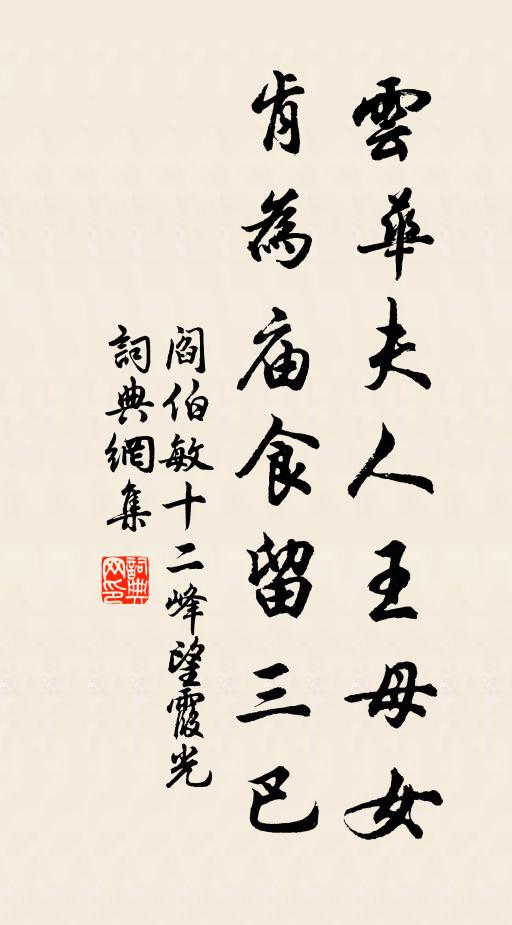 雲華夫人王母女
肯為庙食留三巴
閻伯敏十二峰望霞光
詞典網集
詞典网印